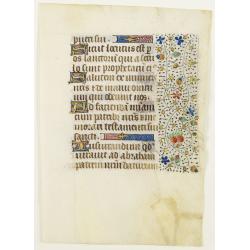 pueri sui.
Sicut locutus est p
os sanctorum qui a secu
lo sunt prophetarum ei
Salutem ex inimicis
nris et de manu omni
um qui oderunt nos
Ad faciendam miam
cum patribus nris et me
morari testamenti sui
sancti
Iusiurandum qd
iurauit ad abraham
patrem nrm daturum